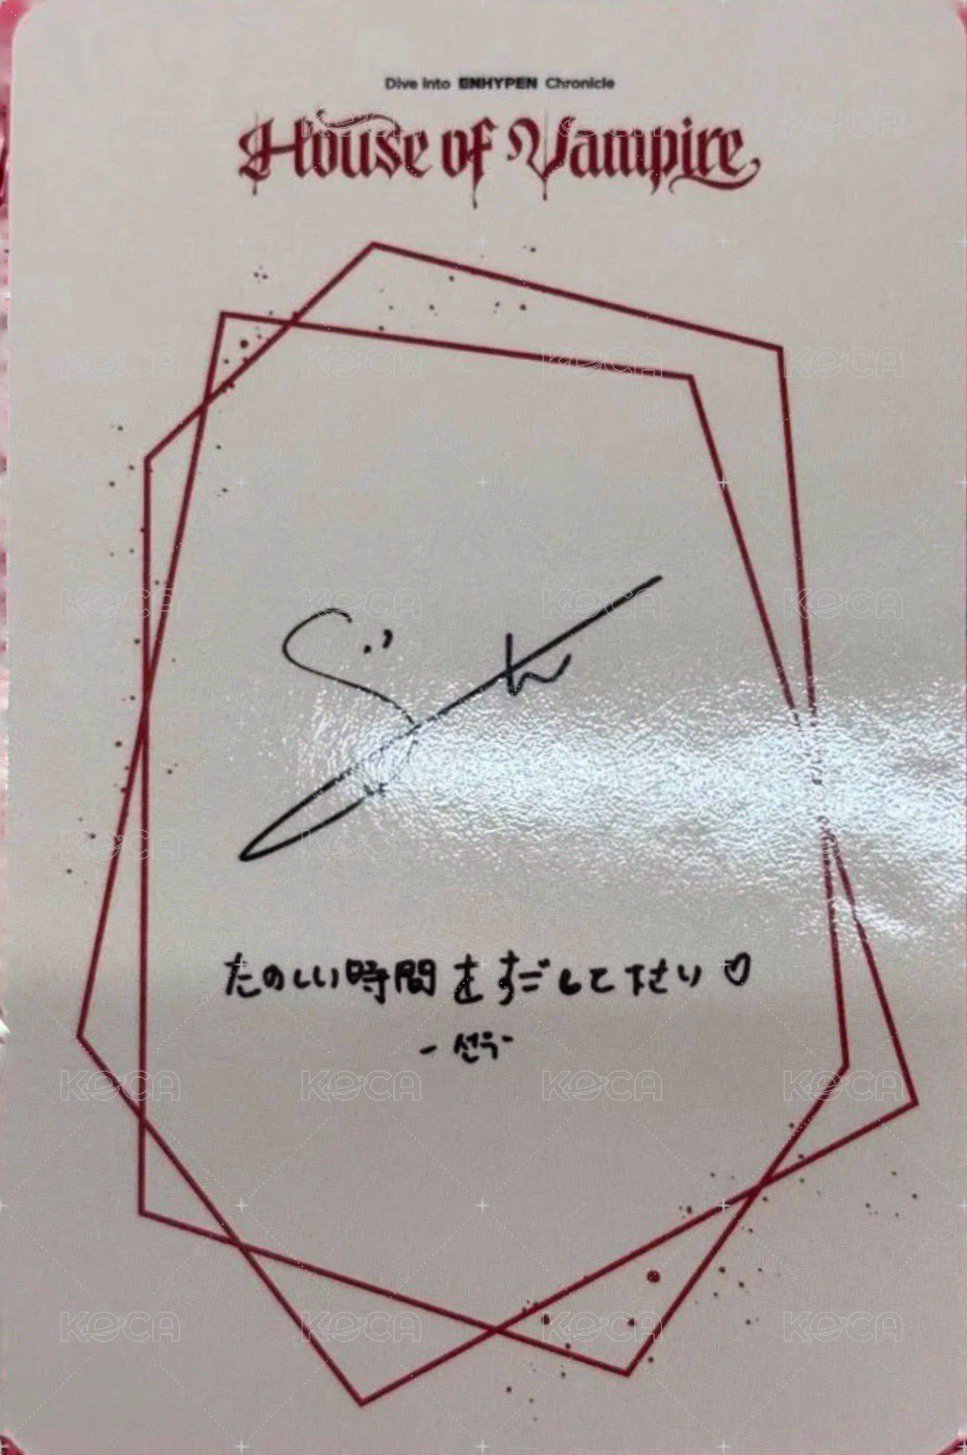 Dive into ENHYPEN Chronicle
House of Vampire
たのしい時間をすごして下さい♡
- 선우 -
KOCA